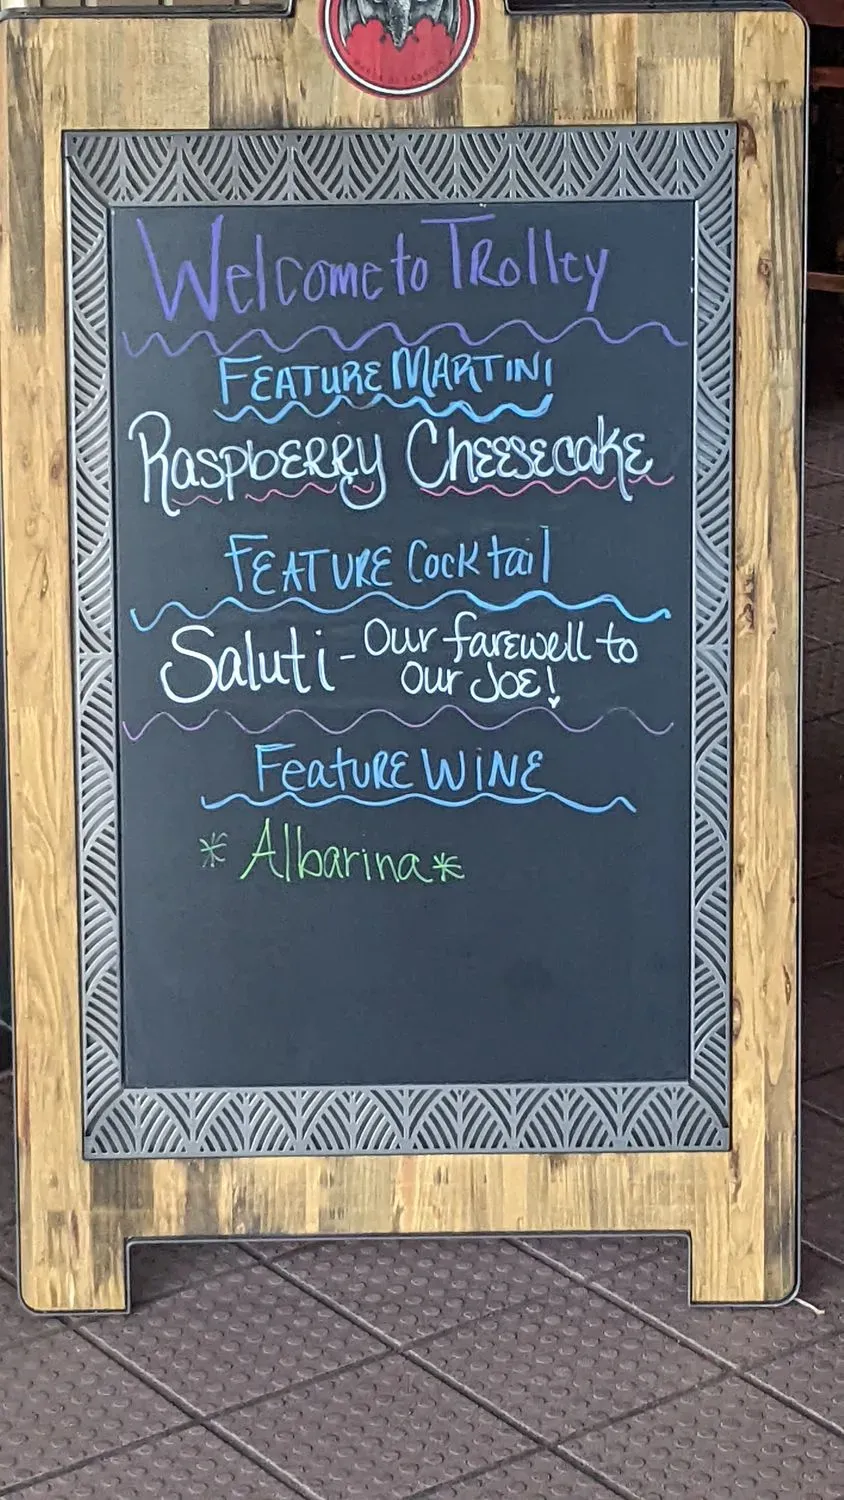 Welcome to Trolley
FEATURE MARTINI
Raspberry Cheesecake
FEATURE Cocktail
Saluti - Our farewell to
our Joe!
Feature WINE
* Albarina *